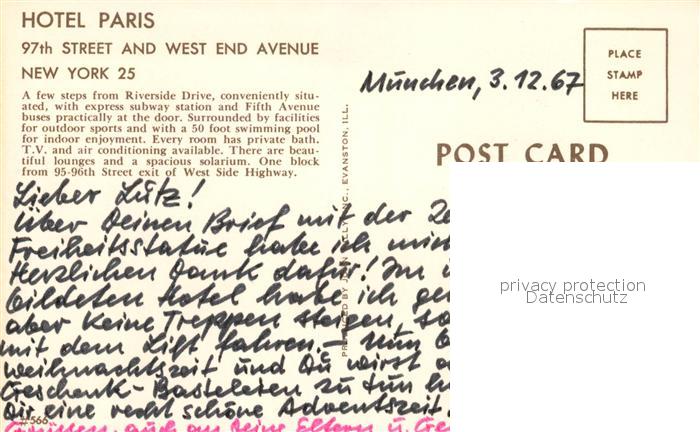 HOTEL PARIS
97th STREET AND WEST END AVENUE
NEW YORK 25
A few steps from Riverside Drive, conveniently situ-
ated, with express subway station and Fifth Avenue
buses practically at the door. Surrounded by facilities
for outdoor sports and with a 50 foot swimming pool
for indoor enjoyment. Every room has private bath.
T.V. and air conditioning available. There are beau-
tiful lounges and a spacious solarium. One block
from 95-96th Street exit of West Side Highway.
PLACE
STAMP
HERE
München, 3.12.67
POST CARD
EVANSTON, ILL.
Lieber Lutz!
Über Deinen Brief mit der
Freiheitsstatue habe ich
Herzlichen Dank dafür! Im
bildeten Hotel habe ich
aber keine Treppen steigen,
mit dem Lift fahren. – Nun
Weihnachtszeit und Du wirst
Geschenk-Basteleien zu tun
Dir eine recht schöne Adventszeit.
Grüssen, auch an Deine Eltern u.
#566
privacy protection
Datenschutz